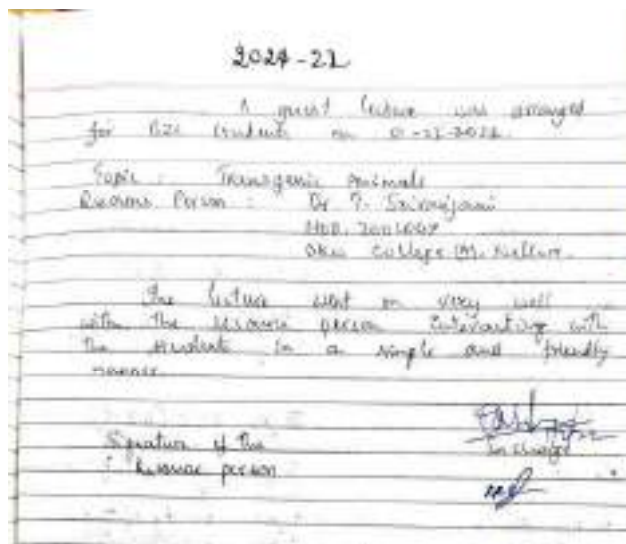 A guest lecture was arranged
for BZC students on
Topic : Transgenic Animals
Resource Person : Dr
HOD, Zoology
DKW College (A), Nellore.
The lecture went on very well
with the resource person interacting with
the students in a simple and friendly
manner.
Signature of the
Resource person
In charge